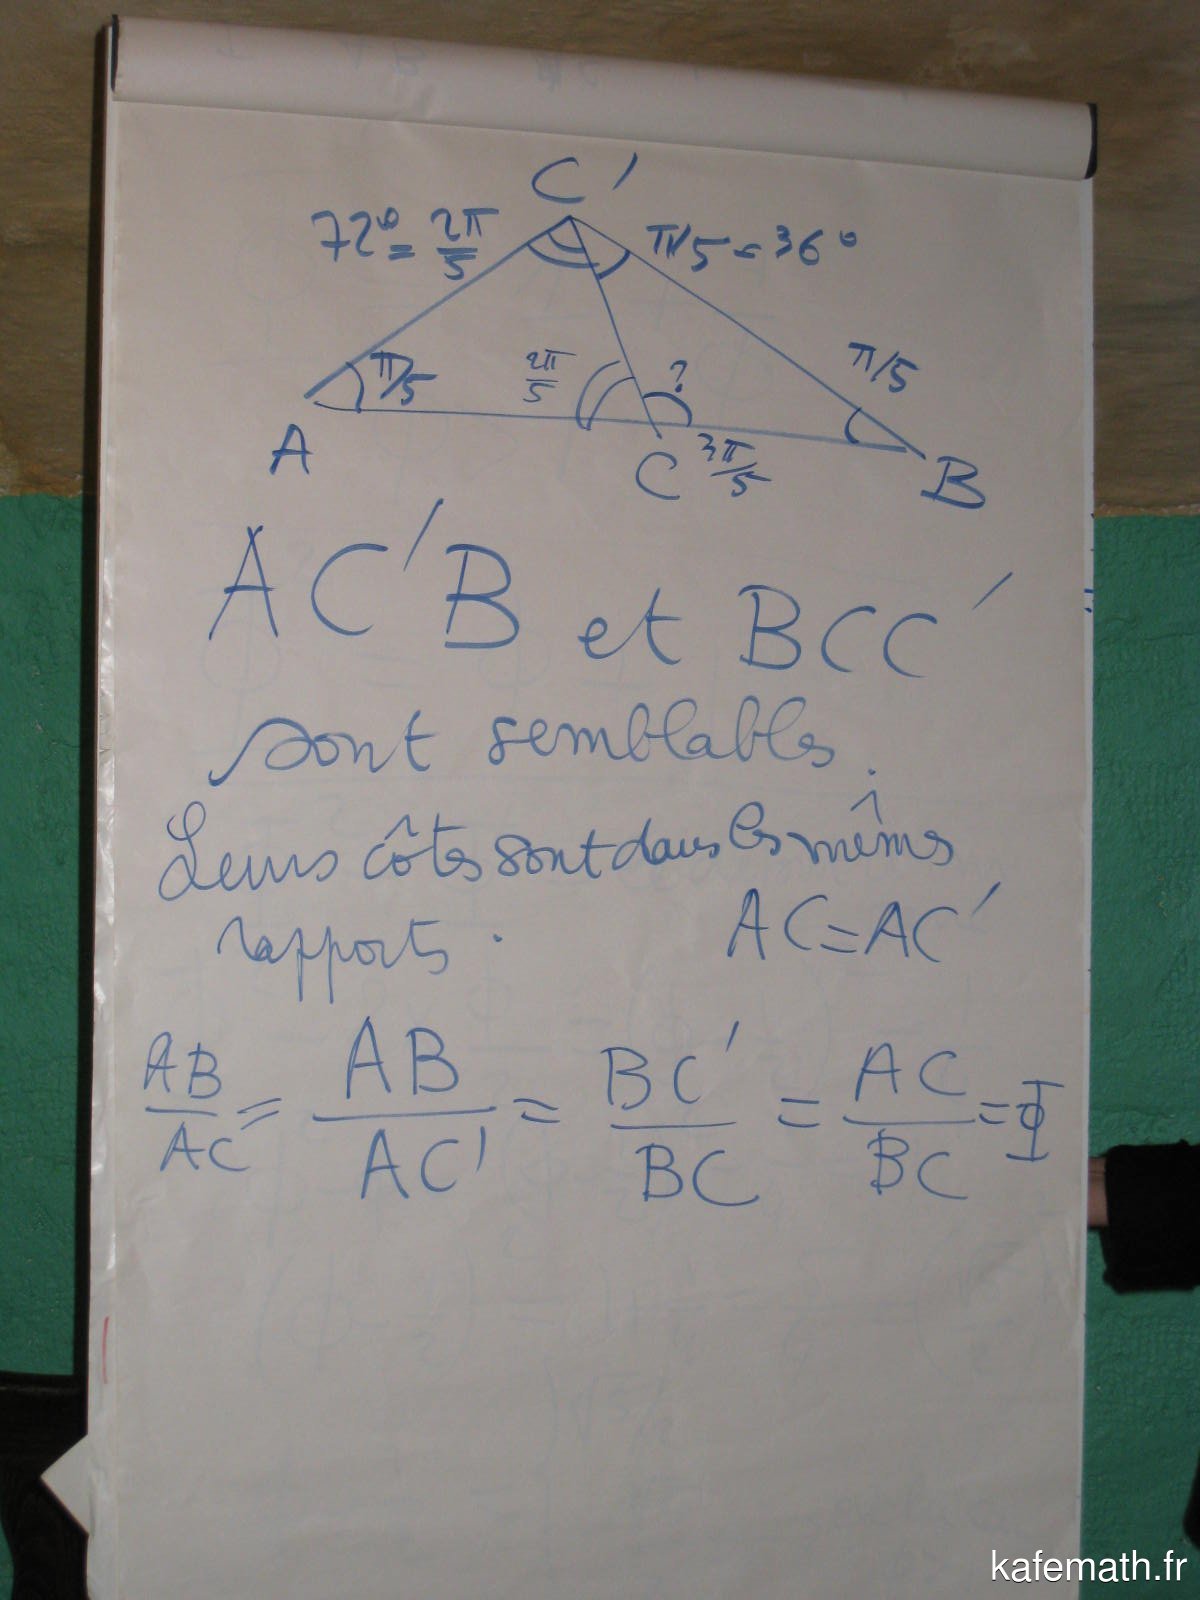 C'
72° = 2π/5
π/5 = 36°
π/5
2π/5
?
π/5
A
C
3π/5
B
AC'B et BCC'
sont semblables.
Leurs côtés sont dans les mêmes
rapports.
AC = AC'
AB/AC = AB/AC' = BC'/BC = AC/BC = Φ
kafemath.fr